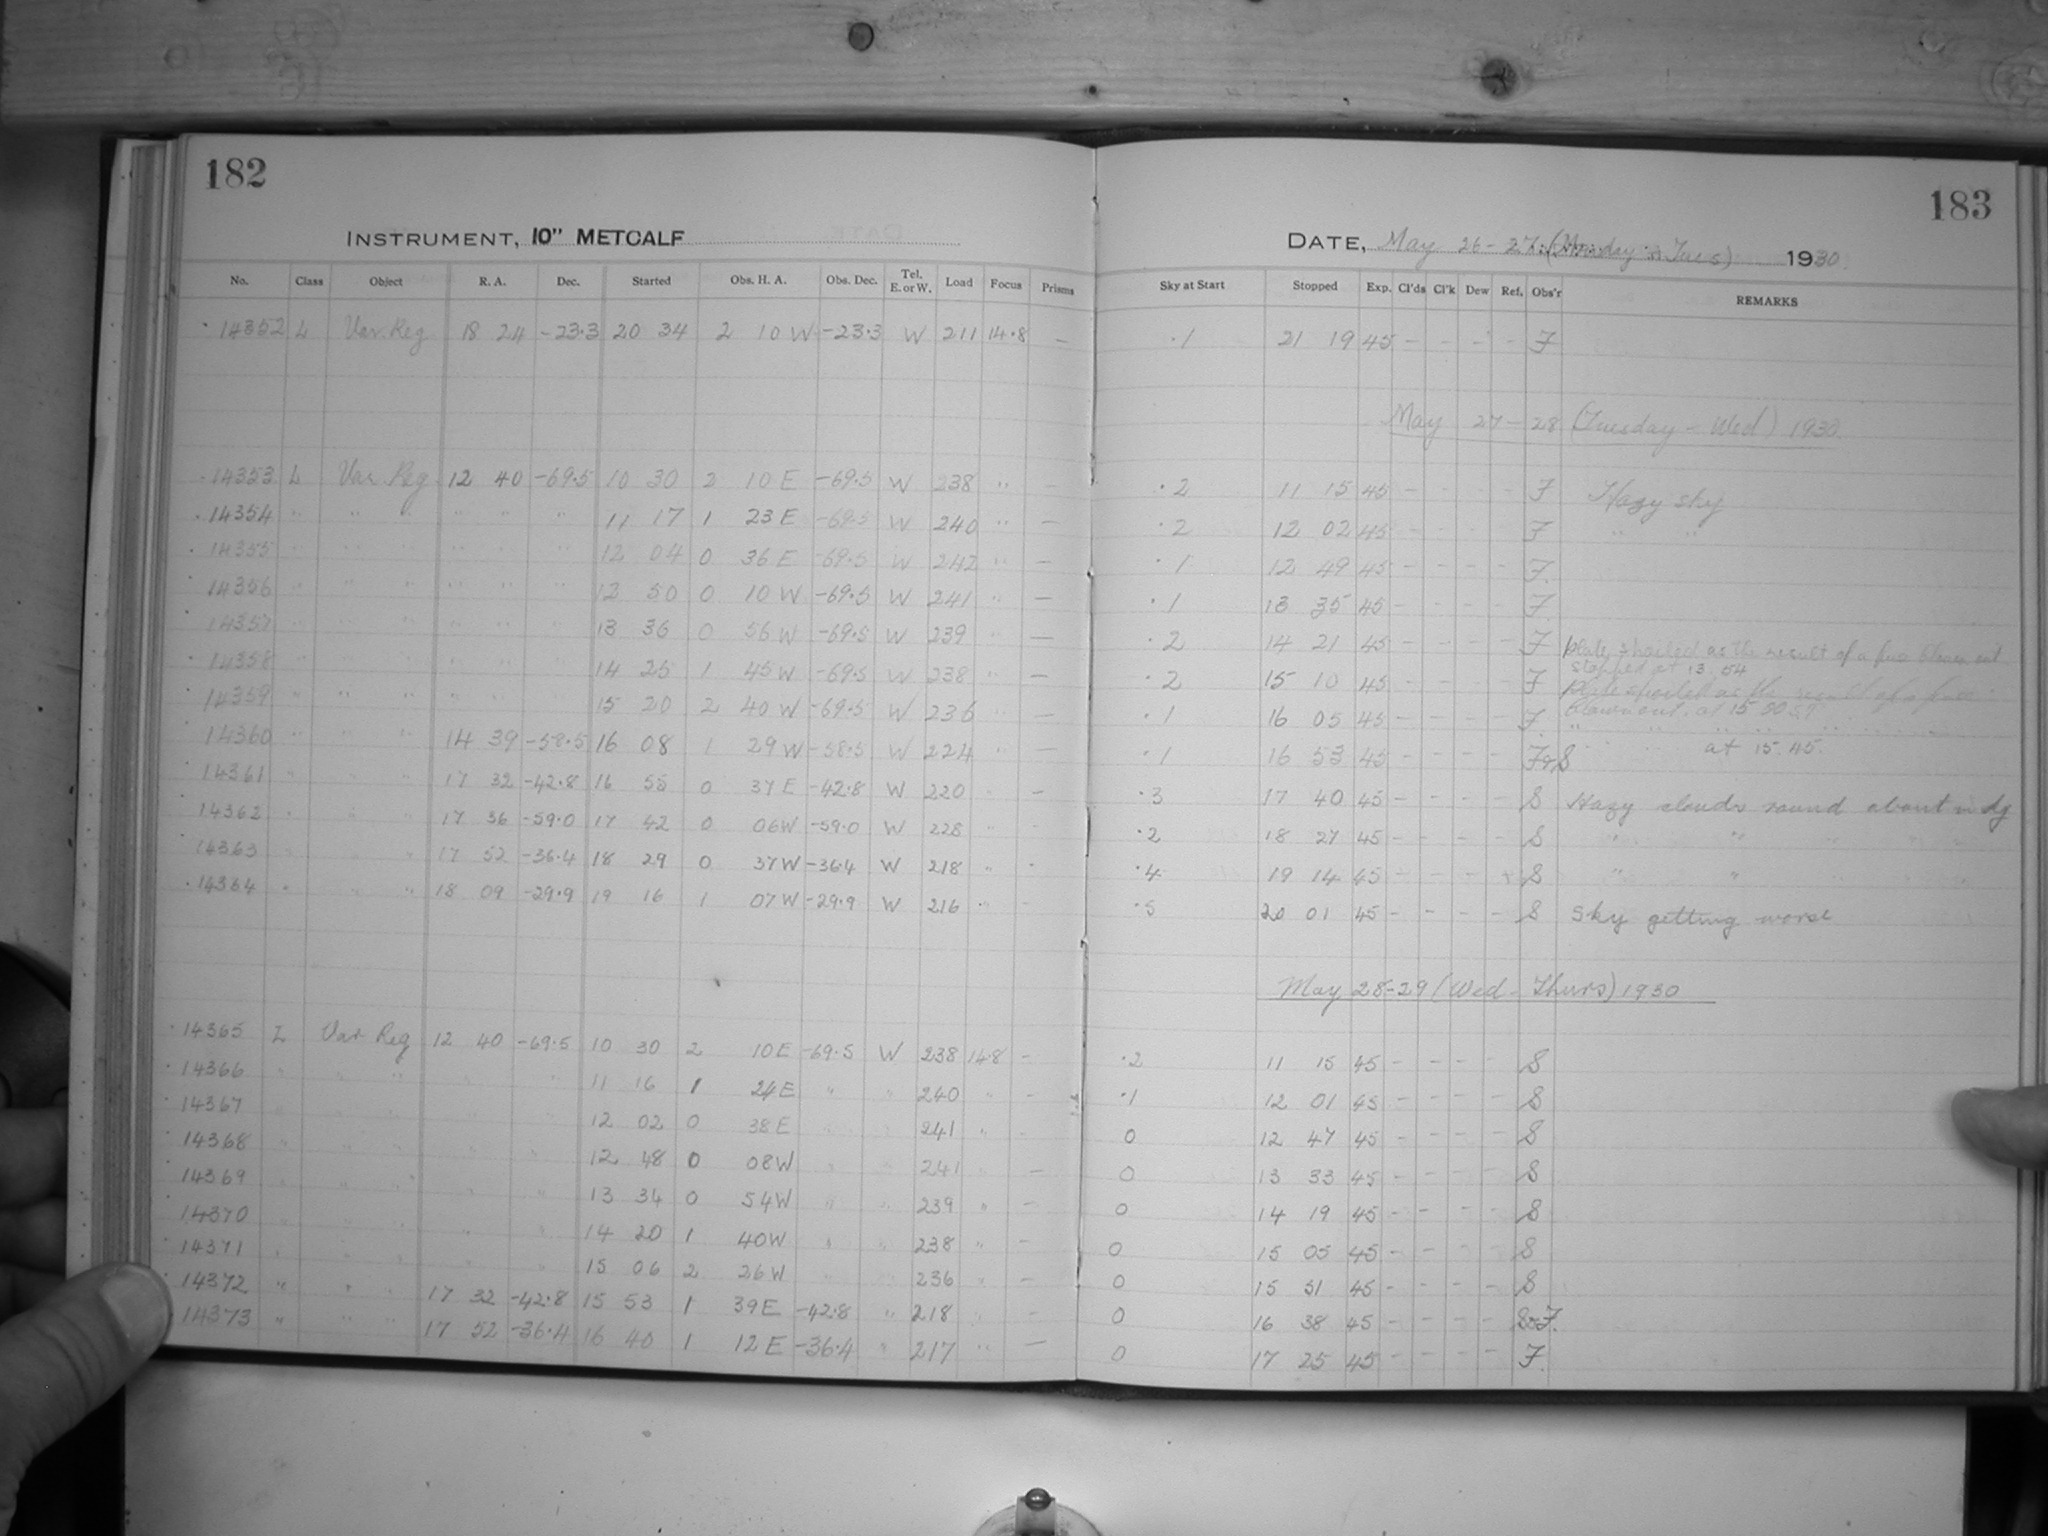 182
INSTRUMENT, 10" METCALF
No. Class Object R. A. Dec. Started Obs. H. A. Obs. Dec. Tel. E. or W. Load Focus Prisms
14352 L Var. Reg 18 24 -23.3 20 34 2 10 W -23.3 W 211 14.8 —
14353 L Var. Reg 12 40 -69.5 10 30 2 10 E -69.5 W 238 " —
14354 " " " " " " 11 17 1 23 E -69.5 W 240 " —
14355 " " " " " " 12 04 0 36 E -69.5 W 242 " —
14356 " " " " " " 12 50 0 10 W -69.5 W 241 " —
14357 " " " " " " 13 36 0 56 W -69.5 W 239 " —
14358 " " " " " " 14 25 1 45 W -69.5 W 238 " —
14359 " " " " " " 15 20 2 40 W -69.5 W 236 " —
14360 " " " 14 39 -58.5 16 08 1 29 W -58.5 W 224 " —
14361 " " " 17 32 -42.8 16 55 0 37 E -42.8 W 220 " —
14362 " " " 17 36 -59.0 17 42 0 06 W -59.0 W 228 " -
14363 " " " 17 52 -36.4 18 29 0 37 W -36.4 W 218 " -
14364 " " " 18 09 -29.9 19 16 1 07 W -29.9 W 216 " -
14365 L Var Reg 12 40 -69.5 10 30 2 10 E -69.5 W 238 14.8 -
14366 " " " " 11 16 1 24 E " " 240 " -
14367 " " " " 12 02 0 38 E " " 241 " -
14368 " " " " 12 48 0 08 W " " 241 " —
14369 " " " " 13 34 0 54 W " " 239 " —
14370 " " " " 14 20 1 40 W " " 238 " —
14371 " " " " 15 06 2 26 W " " 236 " —
14372 " " " 17 32 -42.8 15 53 1 39 E -42.8 " 218 " -
14373 " " " 17 52 -36.4 16 40 1 12 E -36.4 " 217 " —
183
DATE, May 26-27. (Monday - Tues) 1930
Sky at Start Stopped Exp. Cl'ds Cl'k Dew Ref. Obs'r REMARKS
.1 21 19 45 - - - - F
May 27-28 (Tuesday - Wed) 1930
.2 11 15 45 - - - - F Hazy sky
.2 12 02 45 - - - - F " "
.1 12 49 45 - - - - F.
.1 13 35 45 - - - - F
.2 14 21 45 - - - - F plate spoiled as the result of a fuse blown out
stopped at 13. 54
.2 15 10 45 - - - - F plate spoiled as the result of a fuse
blown out. at 15
.1 16 05 45 - - - - F. " " " "
at 15. 45.
.1 16 53 45 - - - - F&S
.3 17 40 45 - - - - S Hazy clouds round about
.2 18 27 45 - - - - S " " " "
.4 19 14 45 - - - - S " " " "
.5 20 01 45 - - - - S Sky getting worse
May 28-29 (Wed - Thurs) 1930
.2 11 15 45 - - - - S
.1 12 01 45 - - - - S
0 12 47 45 - - - - S
0 13 33 45 - - - - S
0 14 19 45 - - - - S
0 15 05 45 - - - - S
0 15 51 45 - - - - S
0 16 38 45 - - - - S&F.
0 17 25 45 - - - - F.